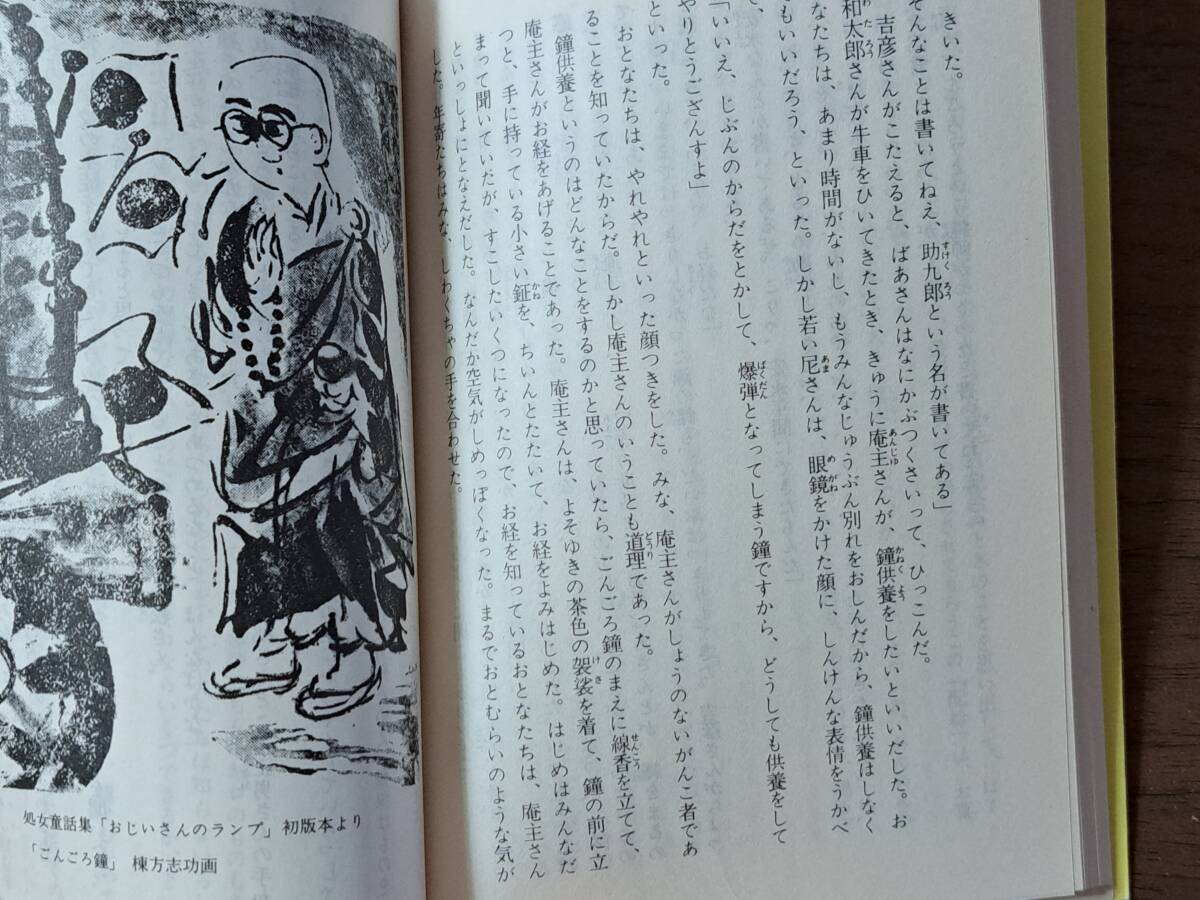 きいた。
そんなことは書いてねえが、助九郎という名が書いてある」
吉彦さんがこたえると、ばあさんはなにかぶつくさいって、ひっこんだ。
和太郎さんが牛車をひいてきたとき、きゅうに庵主さんが、鐘供養をしたいといいだした。お
なたちは、あまり時間がないし、もうみんなじゅうぶん別れをおしんだから、鐘供養はしなく
もいいだろう、といった。しかし若い尼さんは、眼鏡をかけた顔に、しんけんな表情をうかべ
、
「いいえ、じぶんのからだをとかして、爆弾となってしまう鐘ですから、どうしても供養をして
やりとうござんすよ」
といった。
おとなたちは、やれやれといった顔つきをした。みな、庵主さんがしょうのないがんこ者であ
ることを知っていたからだ。しかし庵主さんのいうことも道理であった。
鐘供養というのはどんなことをするのかと思っていたら、ごんごろ鐘のまえに線香を立てて、
庵主さんがお経をあげることであった。庵主さんは、よそゆきの茶色の袈裟を着て、鐘の前に立
つと、手に持っている小さい鉦を、ちいんとたたいて、お経をよみはじめた。はじめはみんなだ
まって聞いていたが、すこしたいくつになったので、お経を知っているおとなたちは、庵主さん
といっしょにとなえだした。なんだか空気がしめっぽくなった。まるでおとむらいのような気が
した。年寄たちはみな、しわくちゃの手を合わせた。
処女童話集「おじいさんのランプ」初版本より
「ごんごろ鐘」 棟方志功画